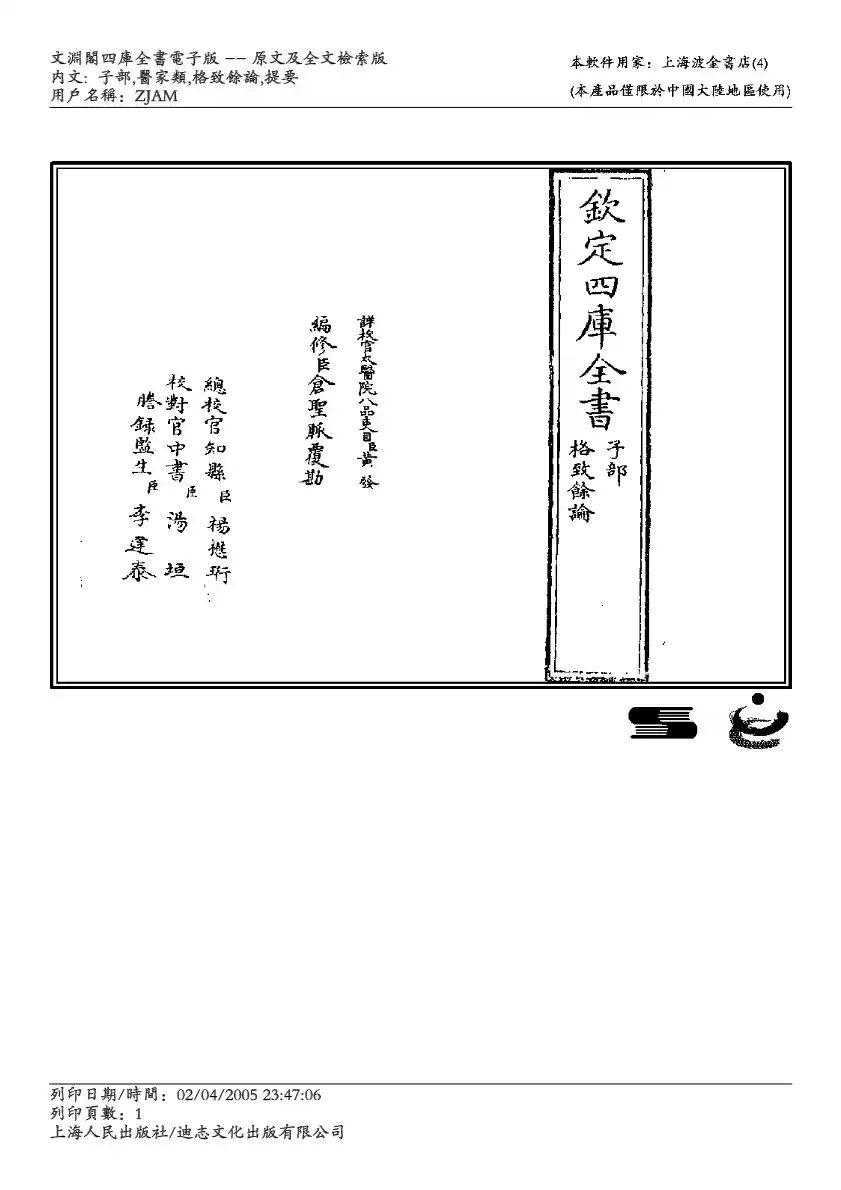 文淵閣四庫全書電子版 -- 原文及全文檢索版
內文: 子部,醫家類,格致餘論,提要
用戶名稱: ZJAM
本軟件用家: 上海波金書店(4)
(本產品僅限於中國大陸地區使用)
欽定四庫全書
子部
格致餘論
詳校官太醫院八品吏目臣黃發
編修臣倉聖脈覆勘
總校官知縣臣楊懋珩
校對官中書臣湯垣
謄錄監生臣李蓬泰
列印日期/時間: 02/04/2005 23:47:06
列印頁數: 1
上海人民出版社/迪志文化出版有限公司